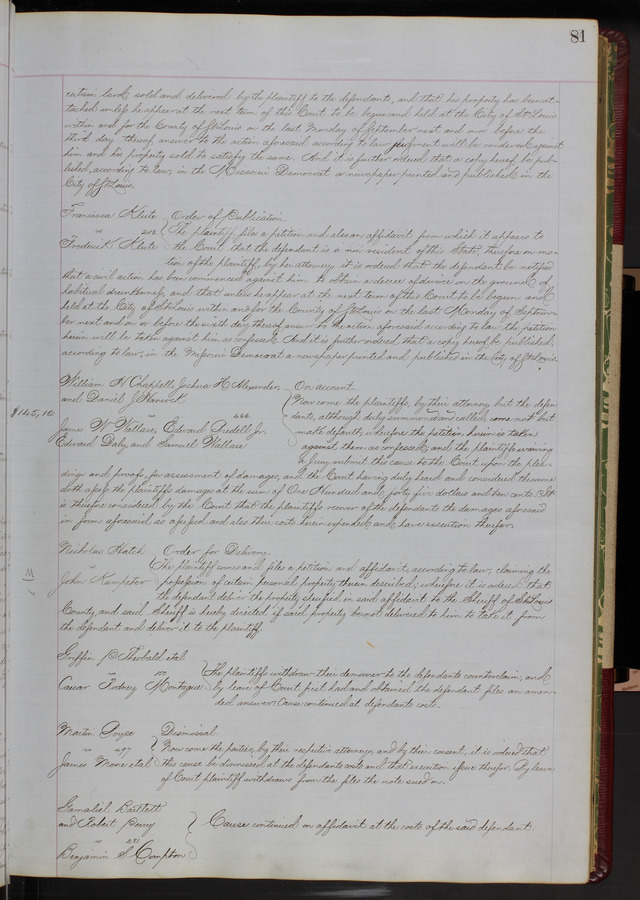 81
certain land sold and delivered by the plaintiff to the defendants, and that his property has been at-
tached unless he appear at the next term of this Court to be begun and held at the City of St Louis
within and for the County of St Louis on the last Monday of September next and on or before the
third day thereof answer to the action aforesaid according to law judgment will be rendered against
him and his property sold to satisfy the same. And it is further ordered that a copy hereof be pub-
lished, according to law, in the Missouri Democrat a newspaper printed and published in the
City of St Louis.
Francisca Klute Order of Publication
vs The plaintiff files a petition and also an affidavit from which it appears to
Frederick Klute the Court that the defendant is a non resident of this State, therefore on mo-
tion of the plaintiff, by her attorney, it is ordered that the defendant be notified
that a civil action has been commenced against him to obtain a decree of divorce on the ground of
habitual drunkenness, and that unless he appear at the next term of this Court to be begun and
held at the City of St Louis within and for the County of St Louis on the last Monday of Septem-
ber next and on or before the sixth day thereof answer to the action aforesaid according to law the petition
herein will be taken against him as confessed. And it is further ordered that a copy hereof be published,
according to law, in the Missouri Democrat a newspaper printed and published in the City of St Louis.
William H Chappell, Joshua H Alexander On account
and Daniel J Hancock Now come the plaintiffs, by their attorney but the defen-
$145,10 vs 466 dants, although duly summoned and called, come not but
James W Wallace, Edward Dedell Jr. make default; wherefore the petition herein is taken
Edward Daly, and Samuel Wallace against them as confessed; and the plaintiffs waiving
a jury submit this cause to the Court upon the plea-
dings and proofs, for assessment of damages, and the Court having duly heard and considered the same
doth assess the plaintiffs damages at the sum of One Hundred and forty five dollars and ten cents. It
is therefore considered by the Court that the plaintiffs recover of the defendants the damages aforesaid
in form aforesaid as assessed and also their costs herein expended, and have execution therefor.
Nicholas Hatch Order for Delivery.
vs The plaintiff comes and files a petition and affidavit, according to law, claiming the
John Kampeter possession of certain personal property therein described; wherefore it is ordered that
the defendant deliver the property specified in said affidavit to the Sheriff of St Louis
County, and said Sheriff is hereby directed, if said property be not delivered to him to take it from
the defendant and deliver it to the plaintiff.
Griffin P Theobald et al The plaintiffs withdraw their demurrer to the defendants counterclaim, and
vs
Caesar Rodney Montague by leave of Court first had and obtained the defendant files an amen-
ded answer. Cause continued at defendants costs.
Martin Joyse Dismissal.
vs 497 Now come the parties, by their respective attorneys, and by their consent, it is ordered that
James More et al this cause be dismissed at the defendants costs and that execution issue therefor. By leave
of Court plaintiff withdraws from the files the note sued on.
Gamaliel Bartlett
and Robert Perry Cause continued on affidavit at the costs of the said defendant.
vs 271
Benjamin S Compton